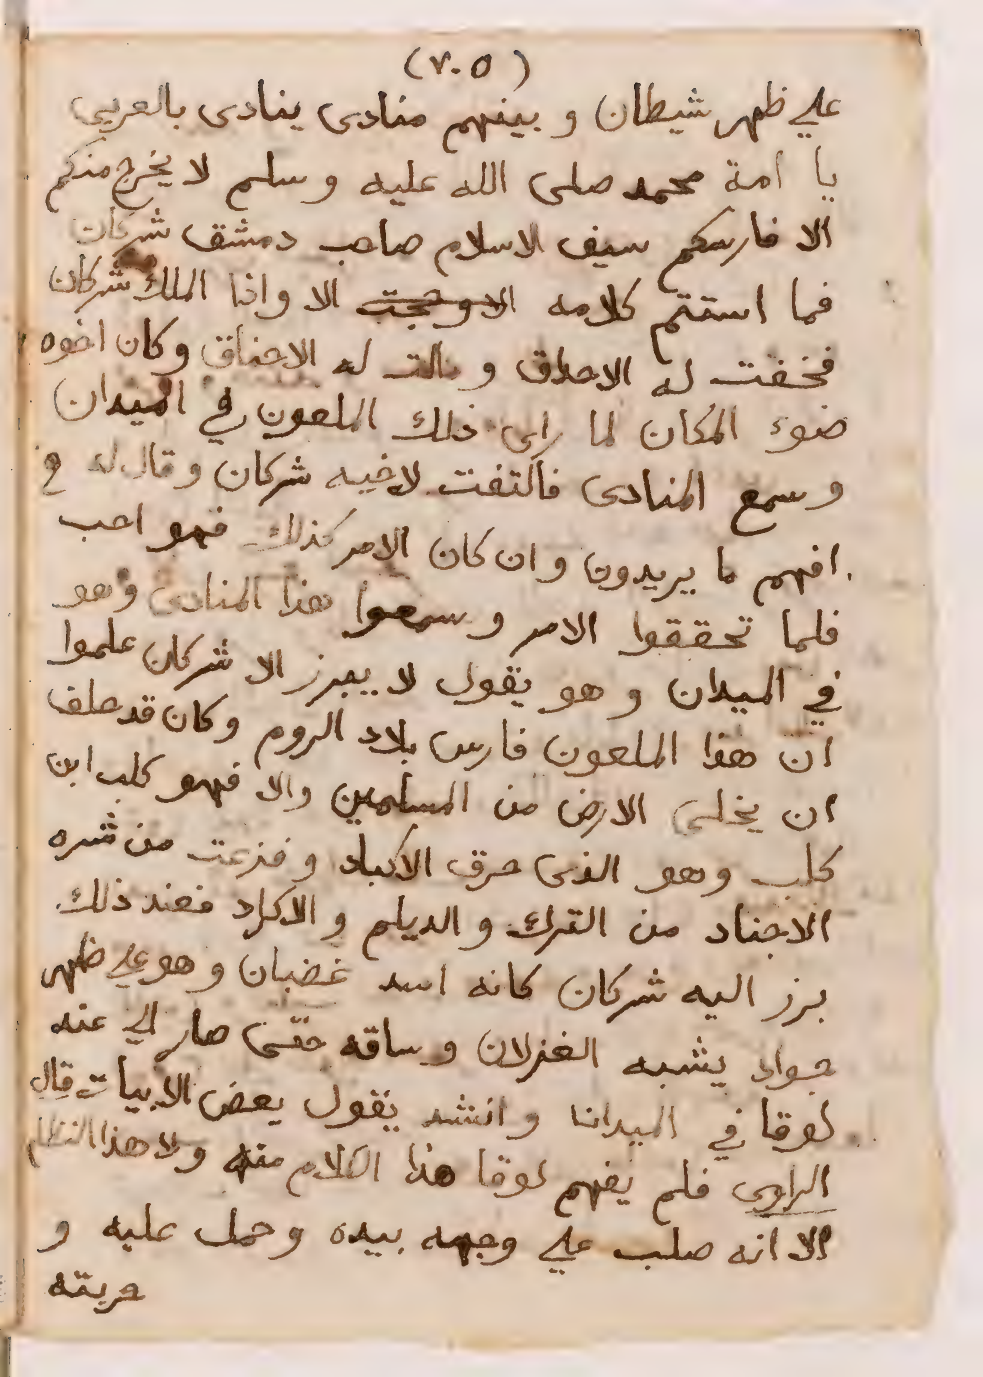 (٧٠٥)
علي ظهر شيطان و بينهم منادى ينادى بالعربي
يا امة محمد صلى الله عليه و سلم لا يخرج منكم
الا فارسكم سيف الاسلام صاحب دمشق شركان
فما استتم كلامه الا وانا الملك شركان
فخفت له الاحداق و مالت له الاعناق وكان اخوه
ضوء المكان لما راى ذلك الملعون في الميدان
و سمع المنادى فالتفت لاخيه شركان و قال له
افهم ما يريدون و ان كان الامر كذلك فهو احب
فلما تحققوا الامر و سمعوا هذا المنادى وهو
في الميدان و هو يقول لا يبرز الا شركان علموا
ان هذا الملعون فارس بلاد الروم وكان قد حلف
ان يخلى الارض من المسلمين والا فهو كلب ابن
كلب وهو الذى حرق الاكباد و فزعت من شره
الاجناد من الترك و الديلم و الاكراد فعند ذلك
برز اليه شركان كانه اسد غضبان و هو علي ظهر
جواد يشبه الغزلان و ساقه حتى صار الي عنه
لوقا في الميدانا و انشد يقول بعض الابيات قال
الراوى فلم يفهم لوقا هذا الكلام منه ولا هذا النظام
الا انه صلب علي وجهه بيده و حمل عليه و
حربته